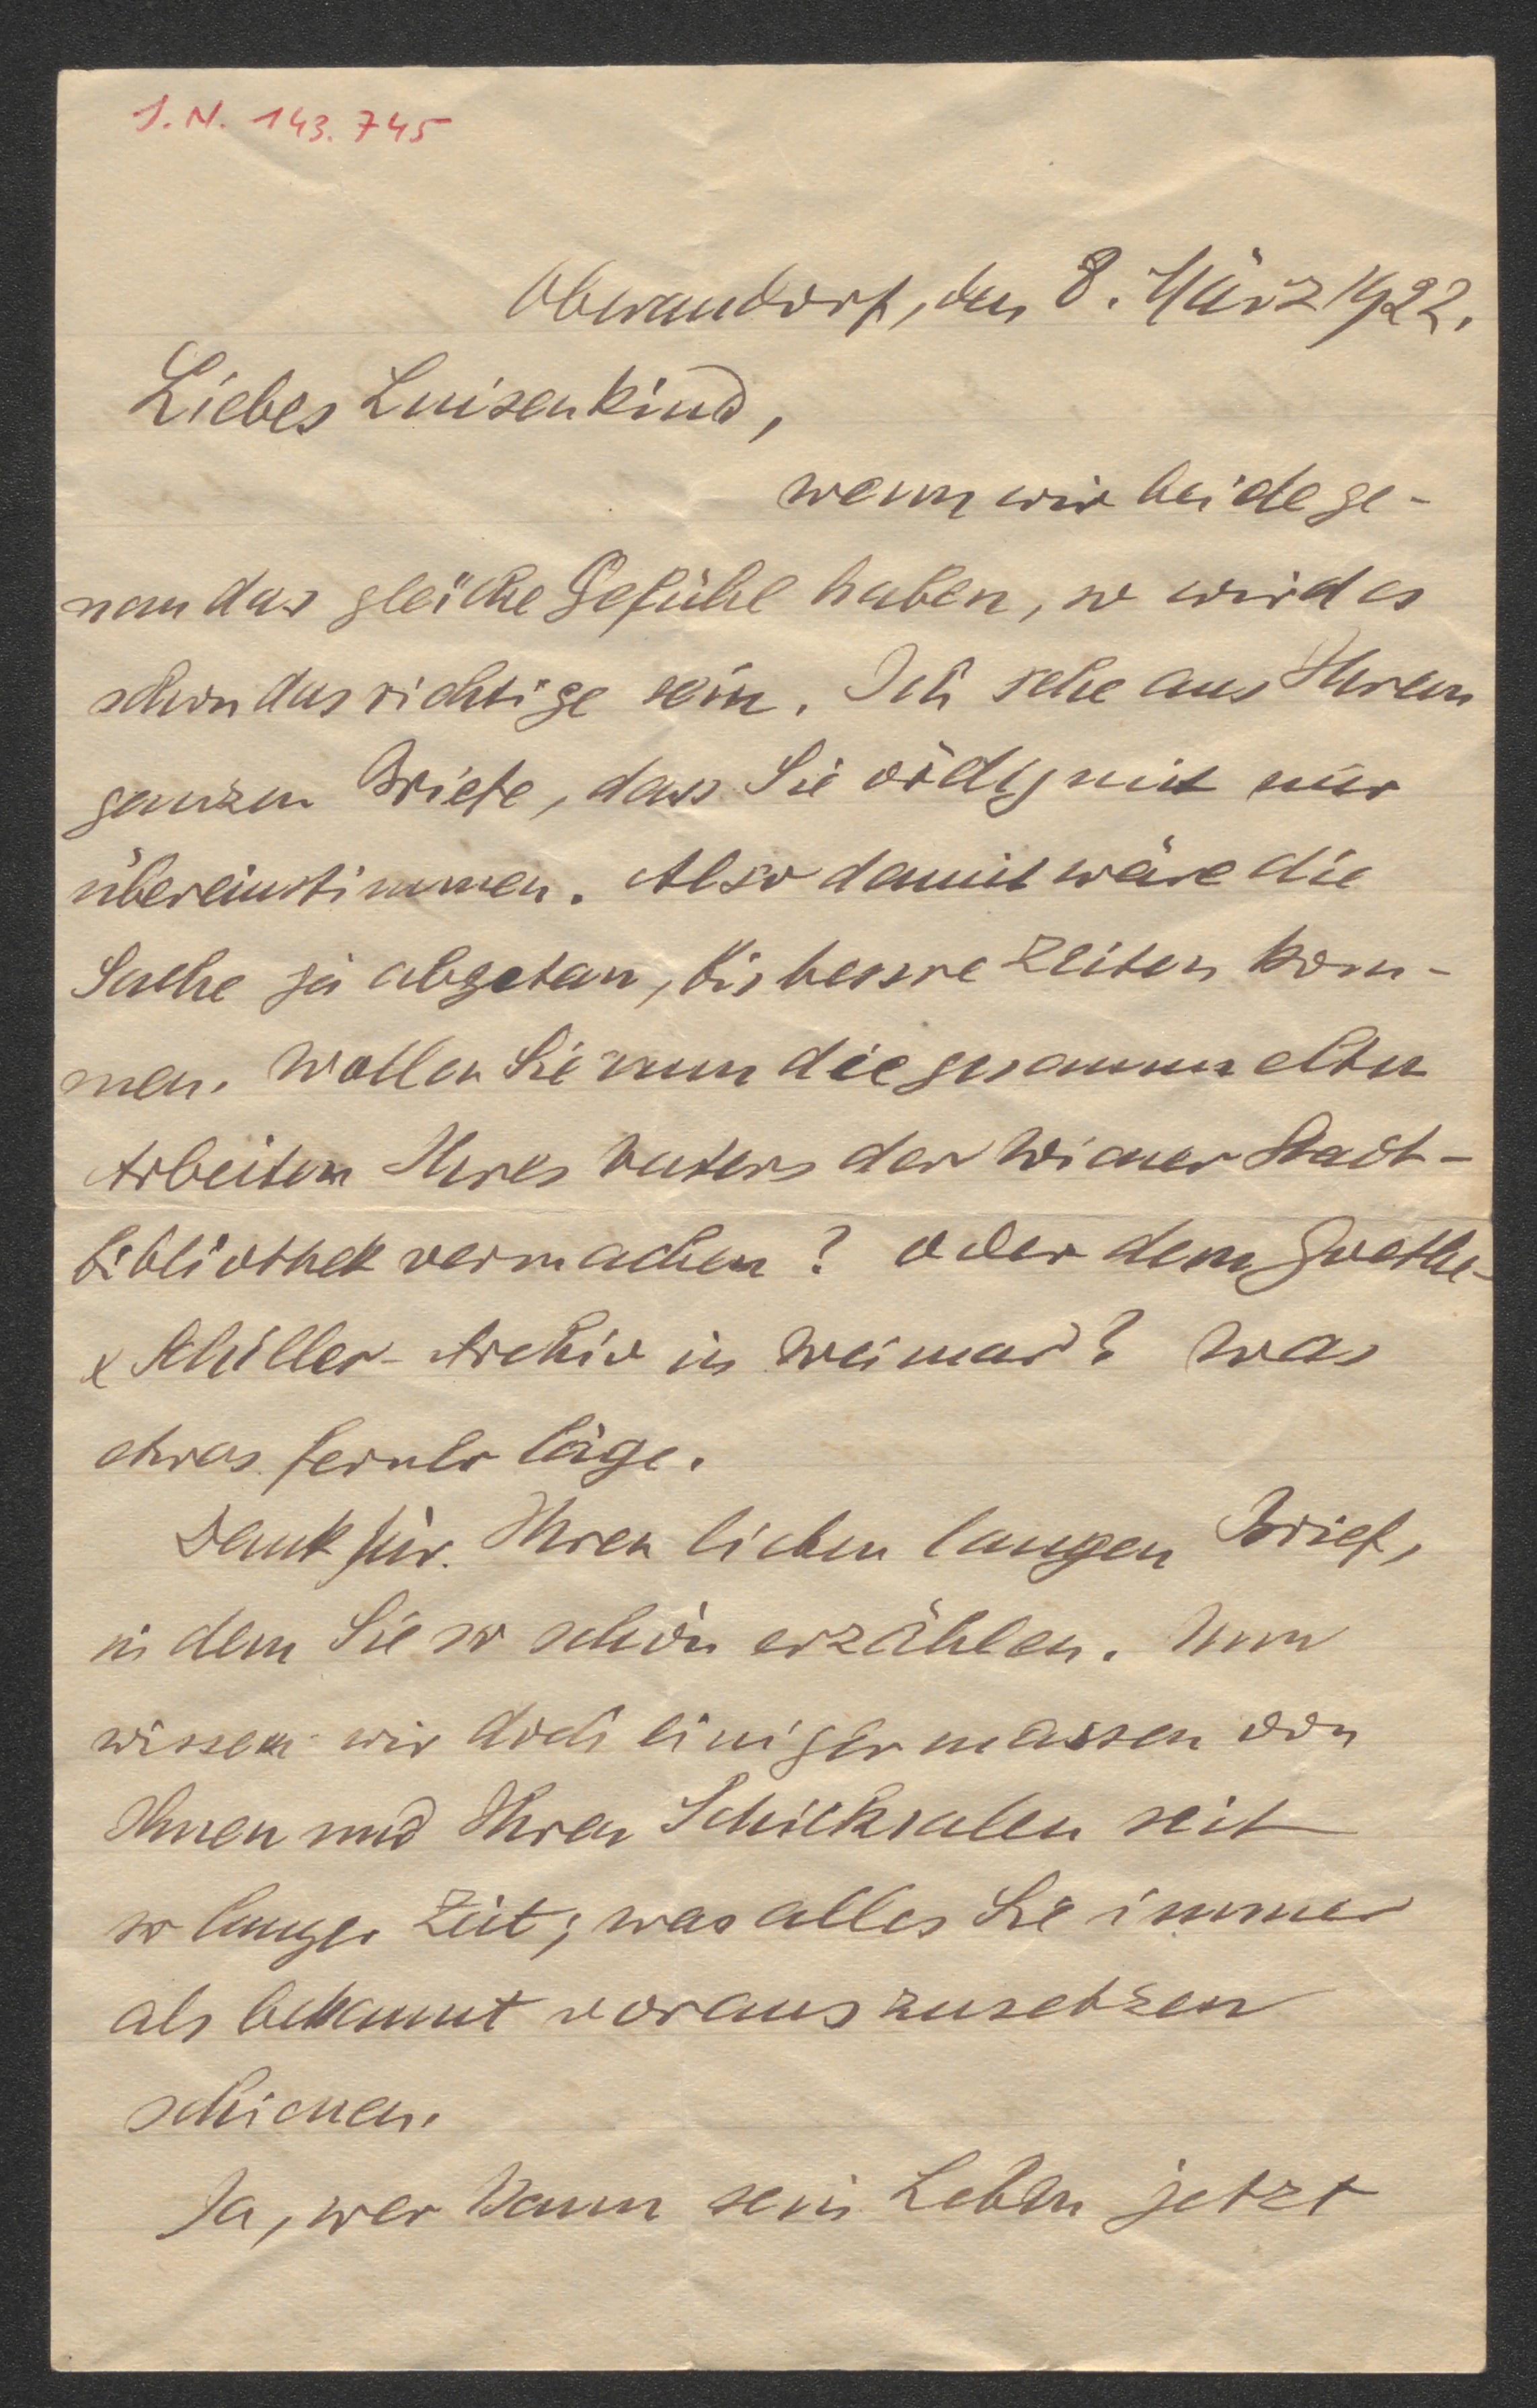 I.N. 143.745
Oberaudorf, den 8. März 1922.
Liebes Luisenkind,
wenn wir beide ge-
nau das gleiche Gefühl haben, so wird es
schon das richtige sein. Ich sehe aus Ihrem
ganzen Briefe, dass Sie völlig mit mir
übereinstimmen. Also damit wäre die
Sache ja abgetan, bis bessre Zeiten kom-
men. Wollen Sie nun die gesammelten
Arbeiten Ihres Vaters der Wiener Stadt-
bibliothek vermachen? oder dem Goethe-
& Schiller-Archiv in Weimar? Was
etwas ferner läge.
Dank für Ihren lieben langen Brief,
in dem Sie so schön erzählen. Nun
wissen wir doch einigermassen von
Ihnen und Ihren Schicksalen seit
so langer Zeit; was alles Sie immer
als bekannt vorauszusetzen
schienen.
Ja, wer kann sein Leben jetzt